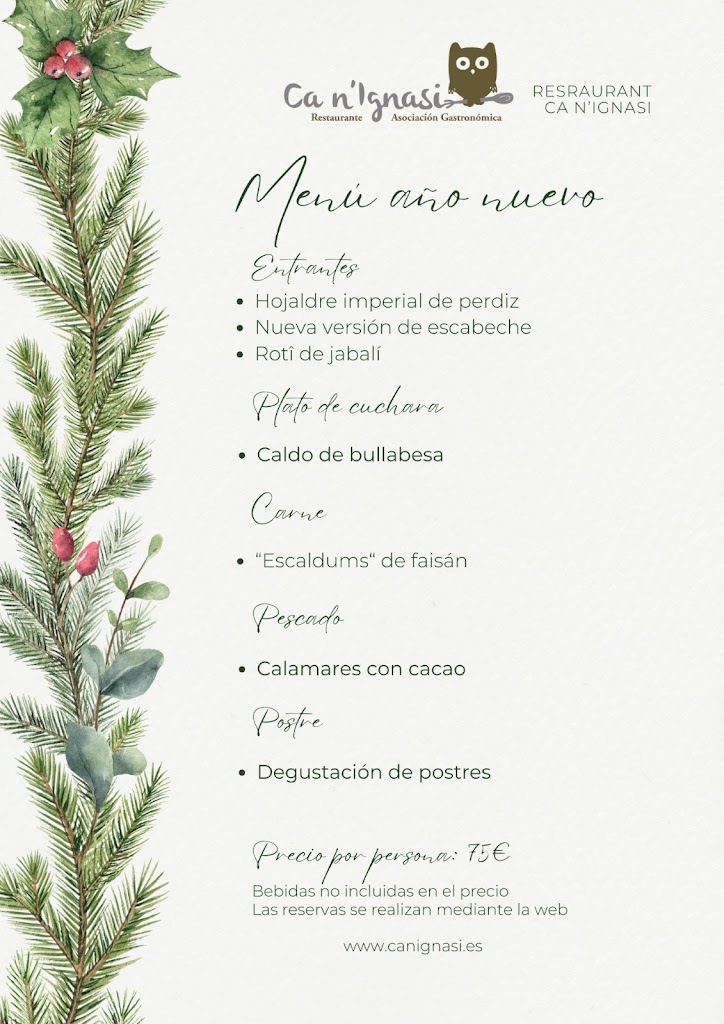 Ca n'Ignasi
Restaurante Asociación Gastronómica
RESRAURANT
CA N'IGNASI
Menú año nuevo
Entrantes
• Hojaldre imperial de perdiz
• Nueva versión de escabeche
• Rotî de jabalí
Plato de cuchara
• Caldo de bullabesa
Carne
• “Escaldums“ de faisán
Pescado
• Calamares con cacao
Postre
• Degustación de postres
Precio por persona: 75€
Bebidas no incluidas en el precio
Las reservas se realizan mediante la web
www.canignasi.es